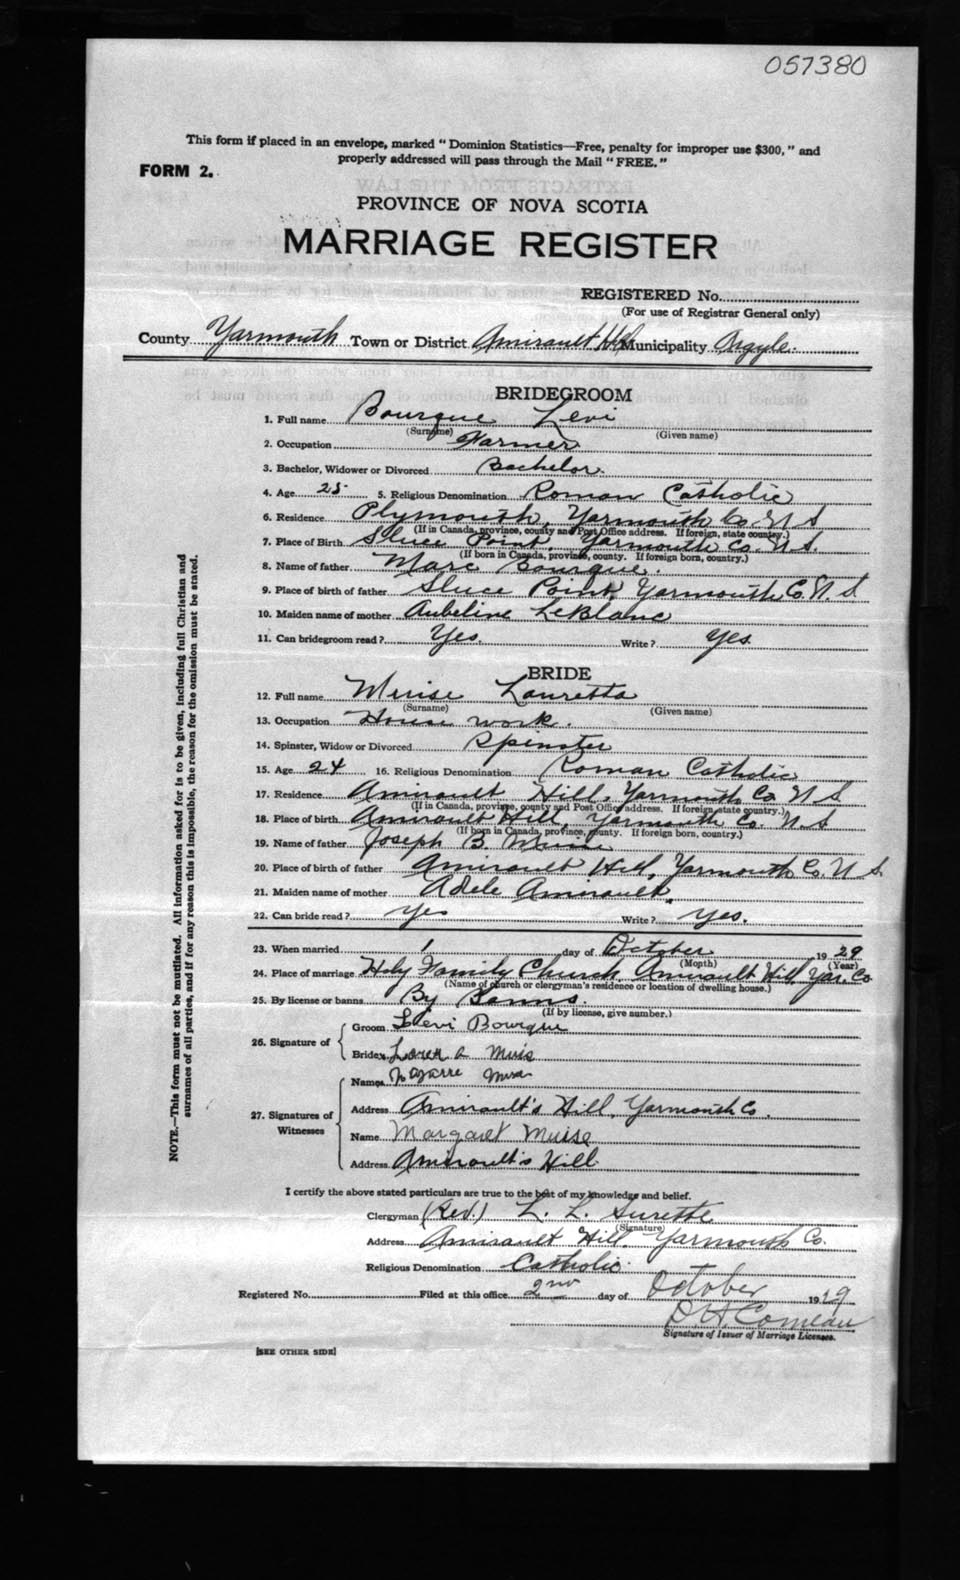 057380
This form if placed in an envelope, marked "Dominion Statistics—Free, penalty for improper use $300," and
properly addressed will pass through the Mail "FREE."
FORM 2.
PROVINCE OF NOVA SCOTIA
MARRIAGE REGISTER
REGISTERED No.
(For use of Registrar General only)
County Yarmouth Town or District Amirault Hill Municipality Argyle.
BRIDEGROOM
1. Full name Bourque Levi
(Surname) (Given name)
2. Occupation Farmer
3. Bachelor, Widower or Divorced Bachelor.
4. Age 25 5. Religious Denomination Roman Catholic
6. Residence Plymouth, Yarmouth Co. N S
(If in Canada, province, county and Post Office address. If foreign, state country.)
7. Place of Birth Sluce Point, Yarmouth Co. N.S.
(If born in Canada, province, county. If foreign born, country.)
8. Name of father Marc Bourque.
9. Place of birth of father Sluce Point, Yarmouth Co. N. S
10. Maiden name of mother Aubeline LeBlanc
11. Can bridegroom read? Yes. Write? Yes.
BRIDE
12. Full name Muise Lauretta
(Surname) (Given name)
13. Occupation House work.
14. Spinster, Widow or Divorced Spinster
15. Age 24 16. Religious Denomination Roman Catholic
17. Residence Amirault Hill, Yarmouth Co N S
(If in Canada, province, county and Post Office address. If foreign, state country.)
18. Place of birth Amirault Hill, Yarmouth Co. N S
(If born in Canada, province, county. If foreign born, country.)
19. Name of father Joseph B. Muise
20. Place of birth of father Amirault Hill, Yarmouth Co. N S.
21. Maiden name of mother Adele Amirault.
22. Can bride read? Yes Write? Yes.
23. When married 1 day of October 1929
(Month) (Year)
24. Place of marriage Holy Family Church, Amirault Hill, Yar. Co
(Name of church or clergyman's residence or location of dwelling house.)
25. By license or banns By Banns.
(If by license, give number.)
26. Signature of
Groom Levi Bourque
Bride Muis
27. Signatures of Witnesses
Name
Address Amirault's Hill, Yarmouth Co.
Name Margaret Muise
Address Amirault's Hill
I certify the above stated particulars are true to the best of my knowledge and belief.
Clergyman (Rev.) L. L. Surette
(Signature)
Address Amirault Hill, Yarmouth Co.
Religious Denomination Catholic.
Registered No. Filed at this office 2nd day of October 1929
D. H. Comeau
Signature of Issuer of Marriage Licenses.
[SEE OTHER SIDE]
NOTE.—This form must not be mutilated. All information asked for is to be given, including full Christian and
surnames of all parties, and if for any reason this is impossible, the reason for the omission must be stated.